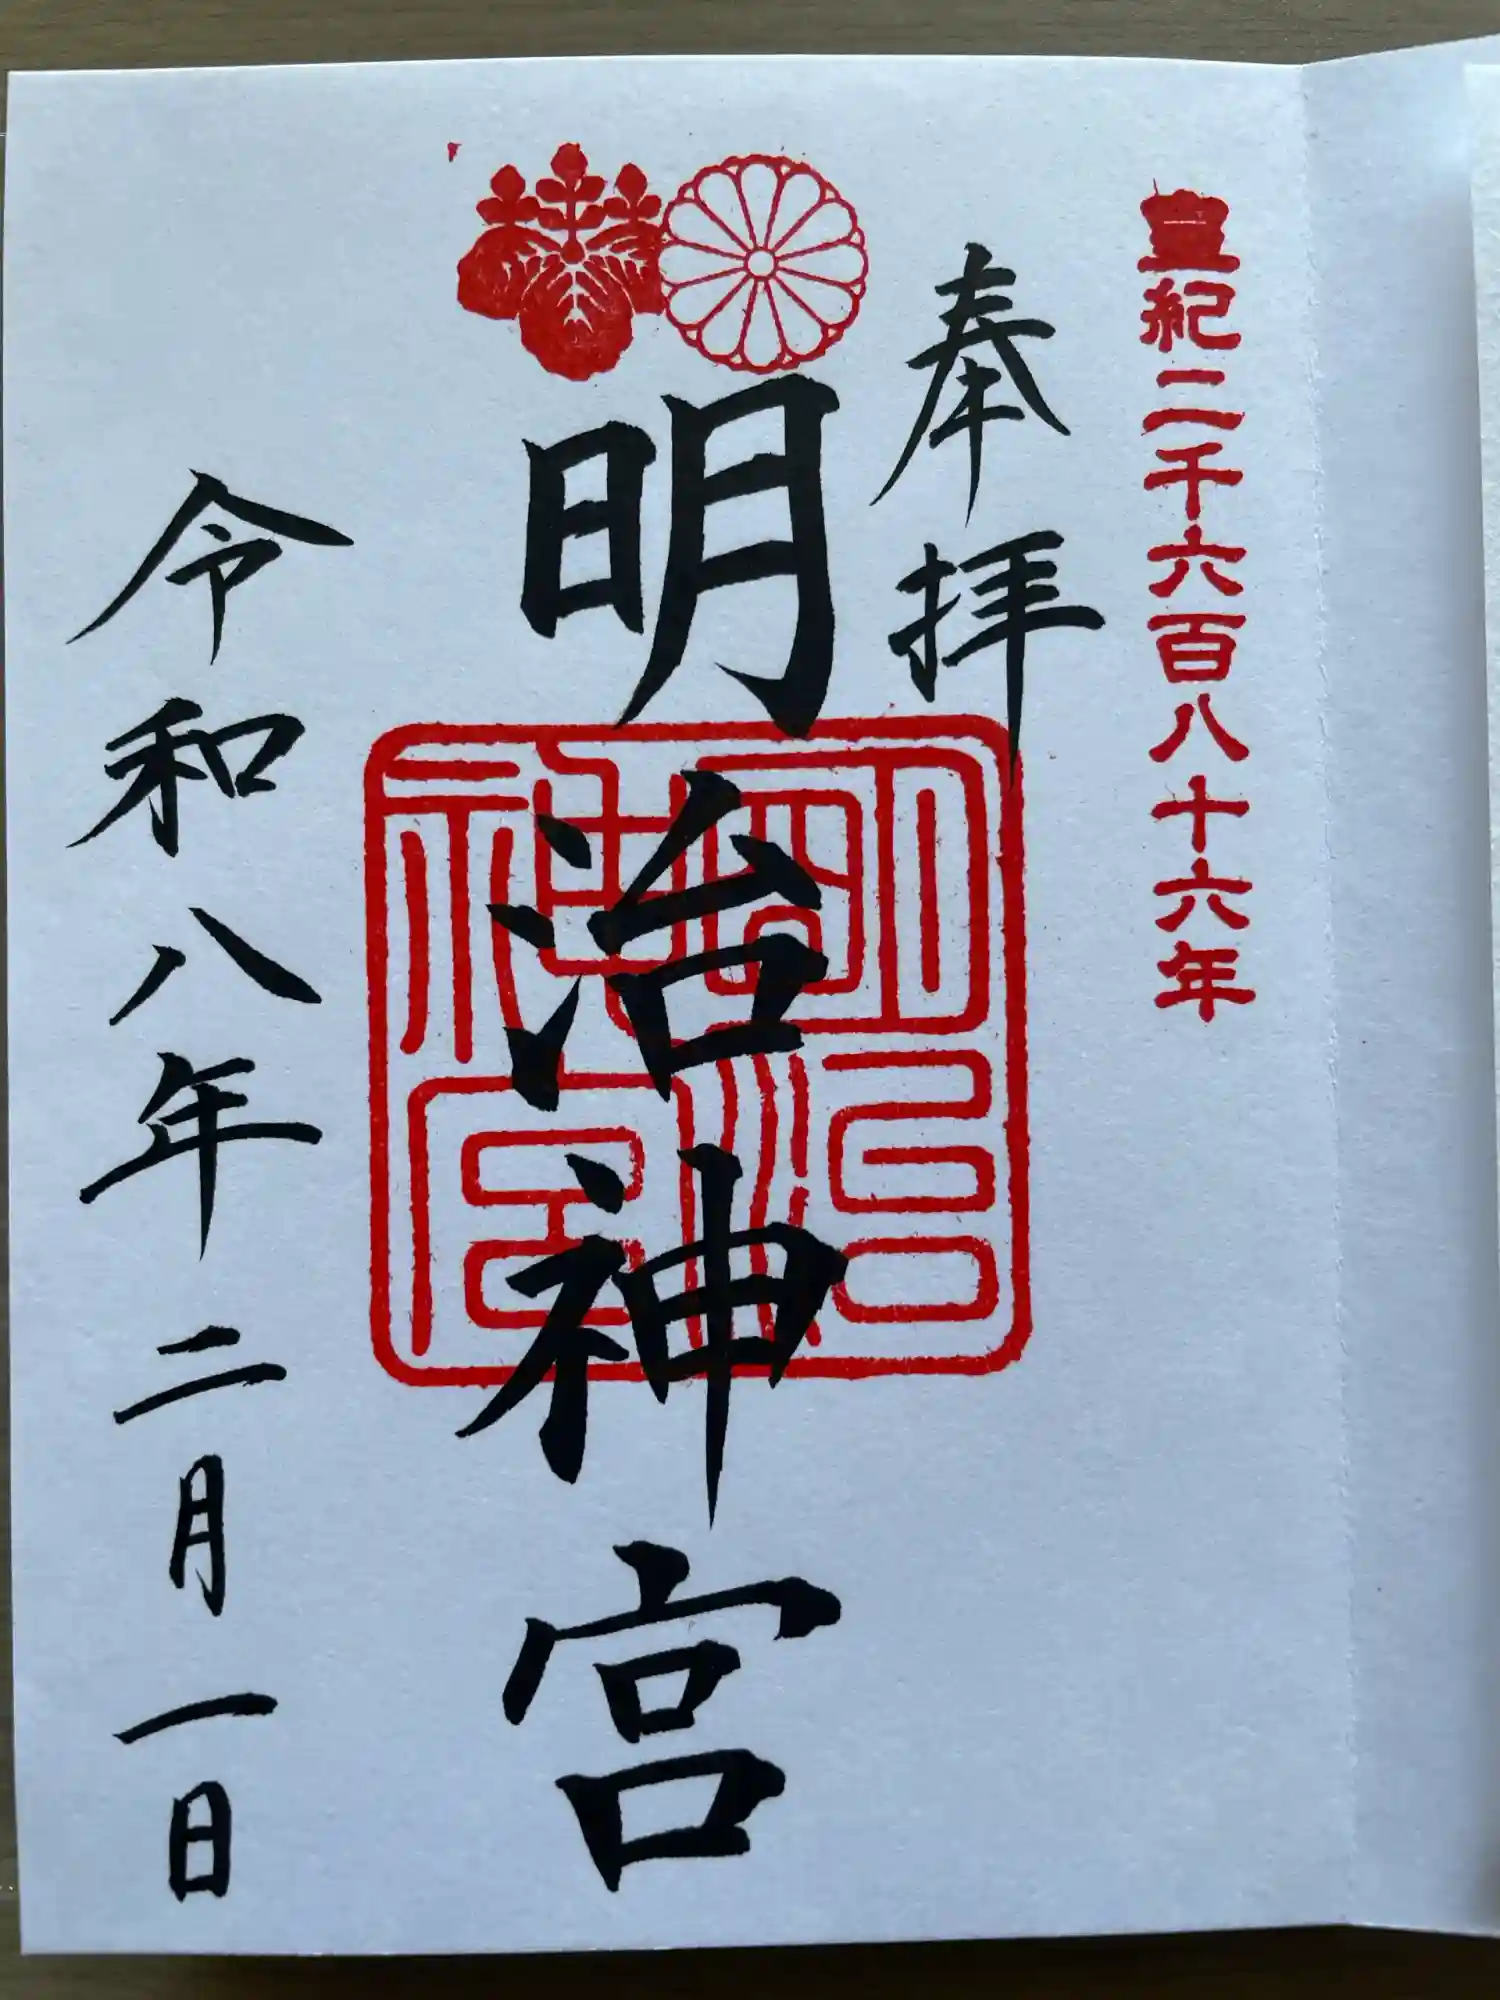 皇紀二千六百八十六年
奉拝
明治神宮
明治神宮
令和八年二月一日